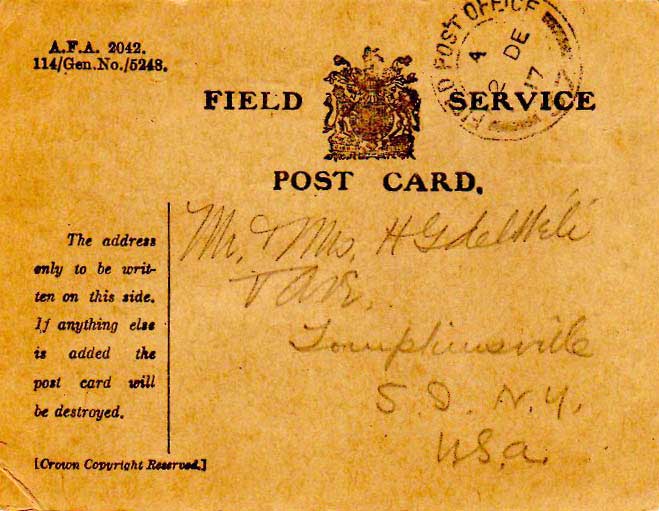 A.F.A. 2042.
114/Gen.No./5248.
FIELD POST OFFICE
4
2 DE
17
FIELD SERVICE
POST CARD.
The address
only to be writ-
ten on this side.
If anything else
is added the
post card will
be destroyed.
[Crown Copyright Reserved.]
Mr. & Mrs. H G
Tompkinsville
S. I. N.Y.
U.S.A.